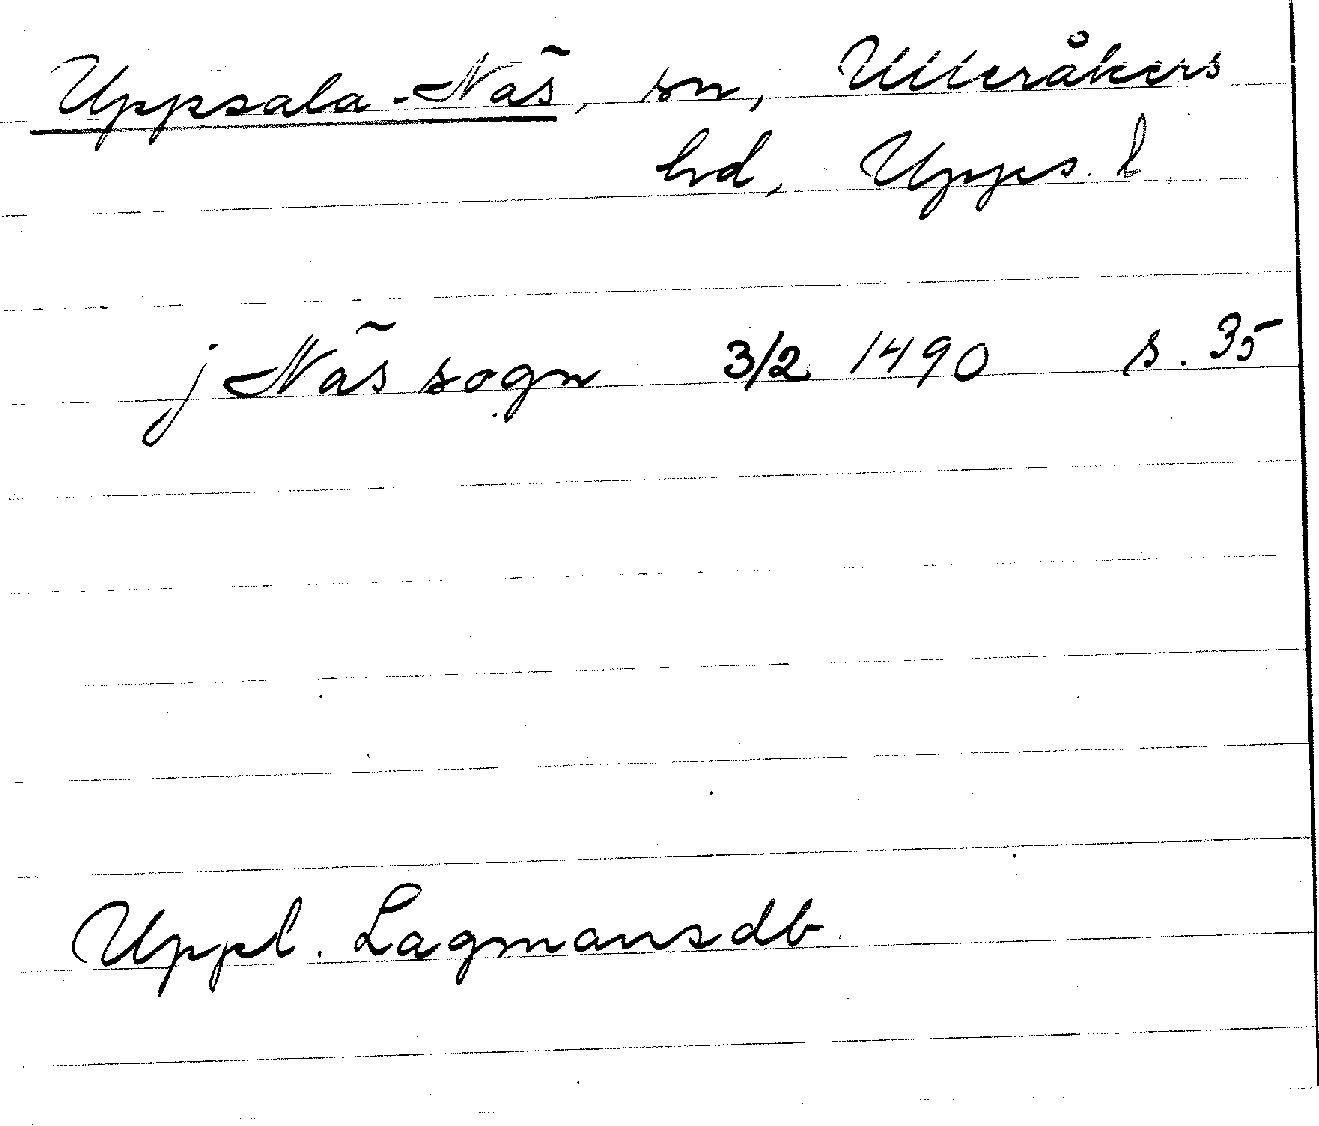 Uppsala-Näs, sn, Ulleråkers
hd, Upps. l.
j Näs sogn 3/2 1490 s. 35
Uppl. Lagmansdb